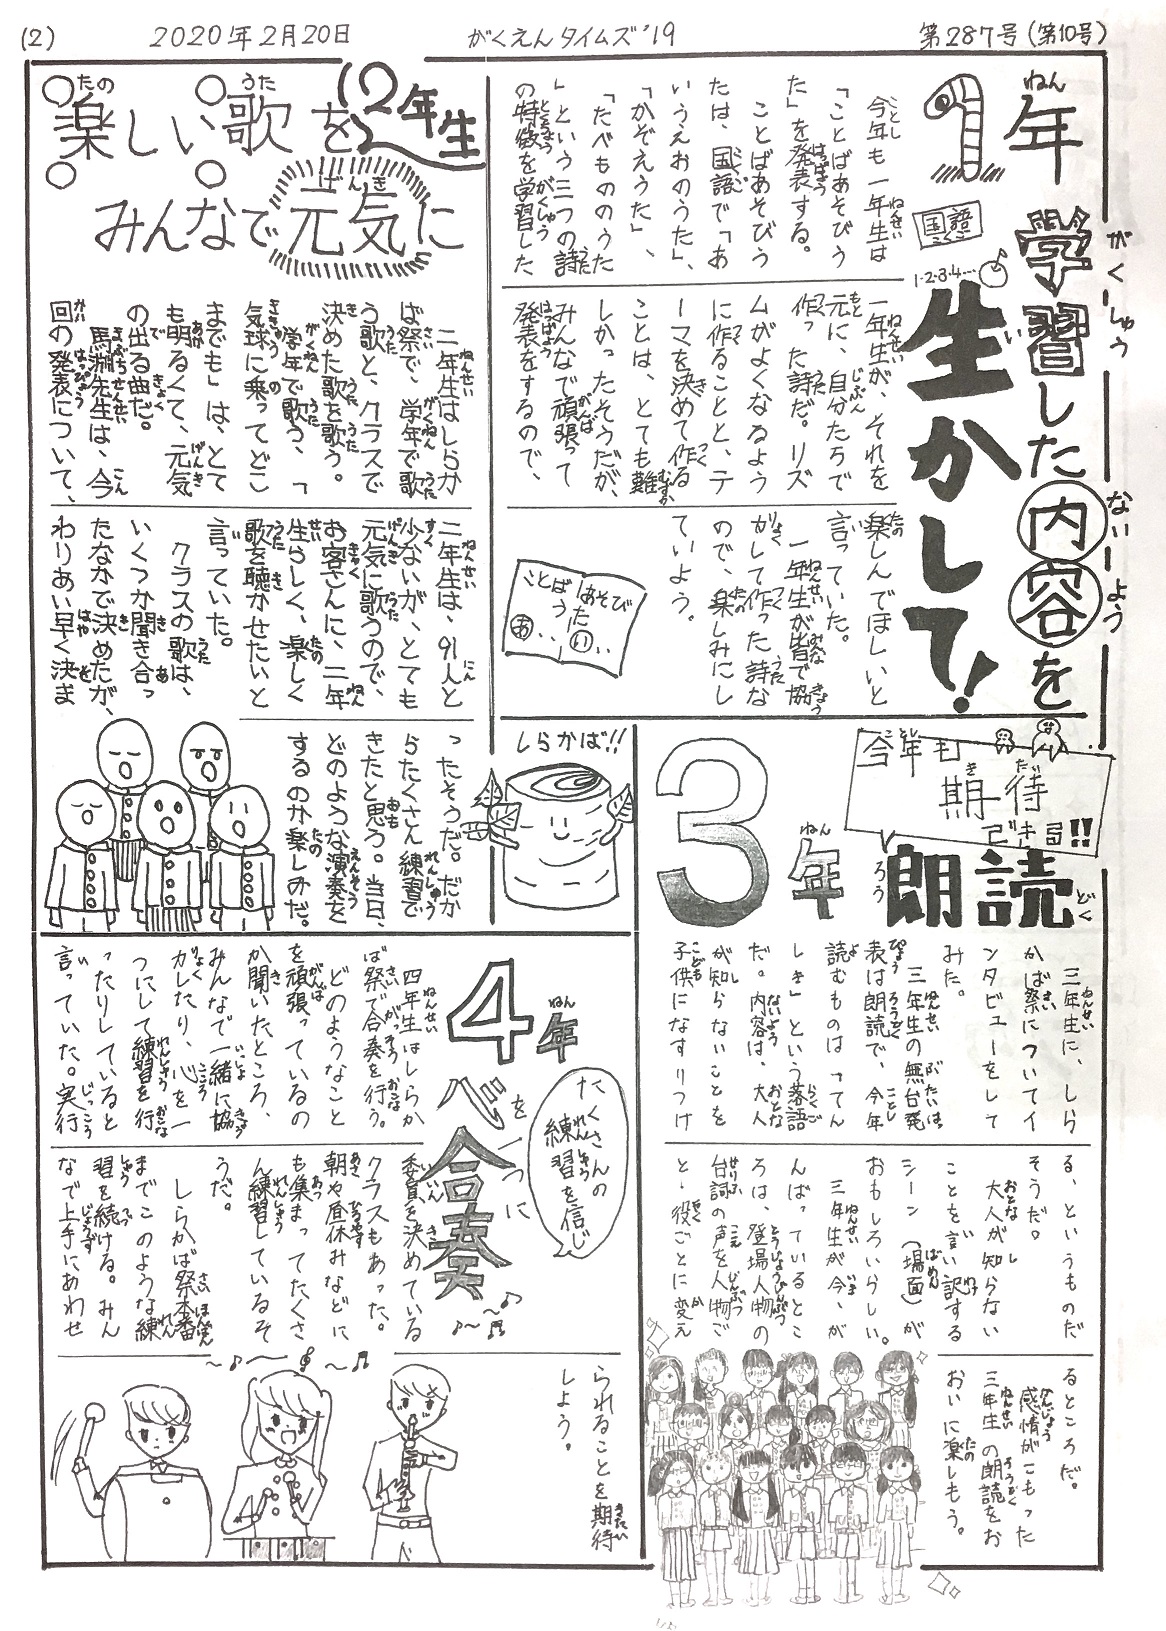 (2)
2020年2月20日
がくえんタイムズ'19
第287号(第10号)
1年
ねん
学習した内容を
がくしゅう
ないよう
生かして!
い
国語
こくご
1・2・3・4・・・
今年も一年生は
「ことばあそびう
た」を発表する。
ことばあそびう
たは、国語で「あ
いうえおのうた」、
「かぞえうた」、
「たべもののうた
」という三つの詩
の特徴を学習した
一年生が、それを
元に、自分たちで
作った詩だ。リズ
ムがよくなるよう
に作ることと、テ
ーマを決めて作る
ことは、とても難
しかったそうだが、
みんなで頑張って
発表をするので、
楽しんでほしいと
言っていた。
一年生が皆で協
力して作った詩な
ので、楽しみにし
ていよう。
ことばあそび
うた
あ
い
り
い
2年生
楽しい歌を
たの
うた
みんなで元気に
げんき
二年生はしらか
ば祭で、学年で歌
う歌と、クラスで
決めた歌を歌う。
学年で歌う、「
気球に乗ってどこ
までも」は、とて
も明るくて、元気
の出る曲だ。
馬渕先生は、今
回の発表について、
二年生は、91人と
少ないが、とても
元気に歌うので、
お客さんに、二年
生らしく、楽しく
歌を聴かせたいと
言っていた。
クラスの歌は、
いくつか聞き合っ
たなかで決めたが、
わりあい早く決ま
ったそうだ。だか
らたくさん練習で
きたと思う。当日、
どのような演奏を
するのか楽しみだ。
しらかば!!
3年
ねん
今年も
ことし
期待
きたい
できる!!
朗読
ろうどく
三年生に、しら
かば祭についてイ
ンタビューをして
みた。
三年生の舞台発
表は朗読で、今年
読むものは「てん
しき」という落語
だ。内容は、大人
が知らないことを
子供になすりつけ
る、というものだ
そうだ。
大人が知らない
ことを言い訳する
シーン(場面)が
おもしろいらしい。
三年生が今、が
んばっているとこ
ろは、登場人物の
台詞の声を人物ご
と・役ごとに変え
るところだ。
感情がこもった
三年生の朗読をお
おいに楽しもう。
4年
ねん
心を一つに
合奏
たくさんの
練習を信じ
れんしゅう
四年生はしらか
ば祭で合奏を行う。
どのようなこと
を頑張っているの
か聞いたところ、
みんなで一緒に協
力したり、心を一
つにして練習を行
ったりしていると
言っていた。実行
委員を決めている
クラスもあった。
朝や昼休みなどに
も集まってたくさ
ん練習しているそ
うだ。
しらかば祭本番
までこのような練
習を続ける。みん
なで上手にあわせ
られることを期待
しよう。